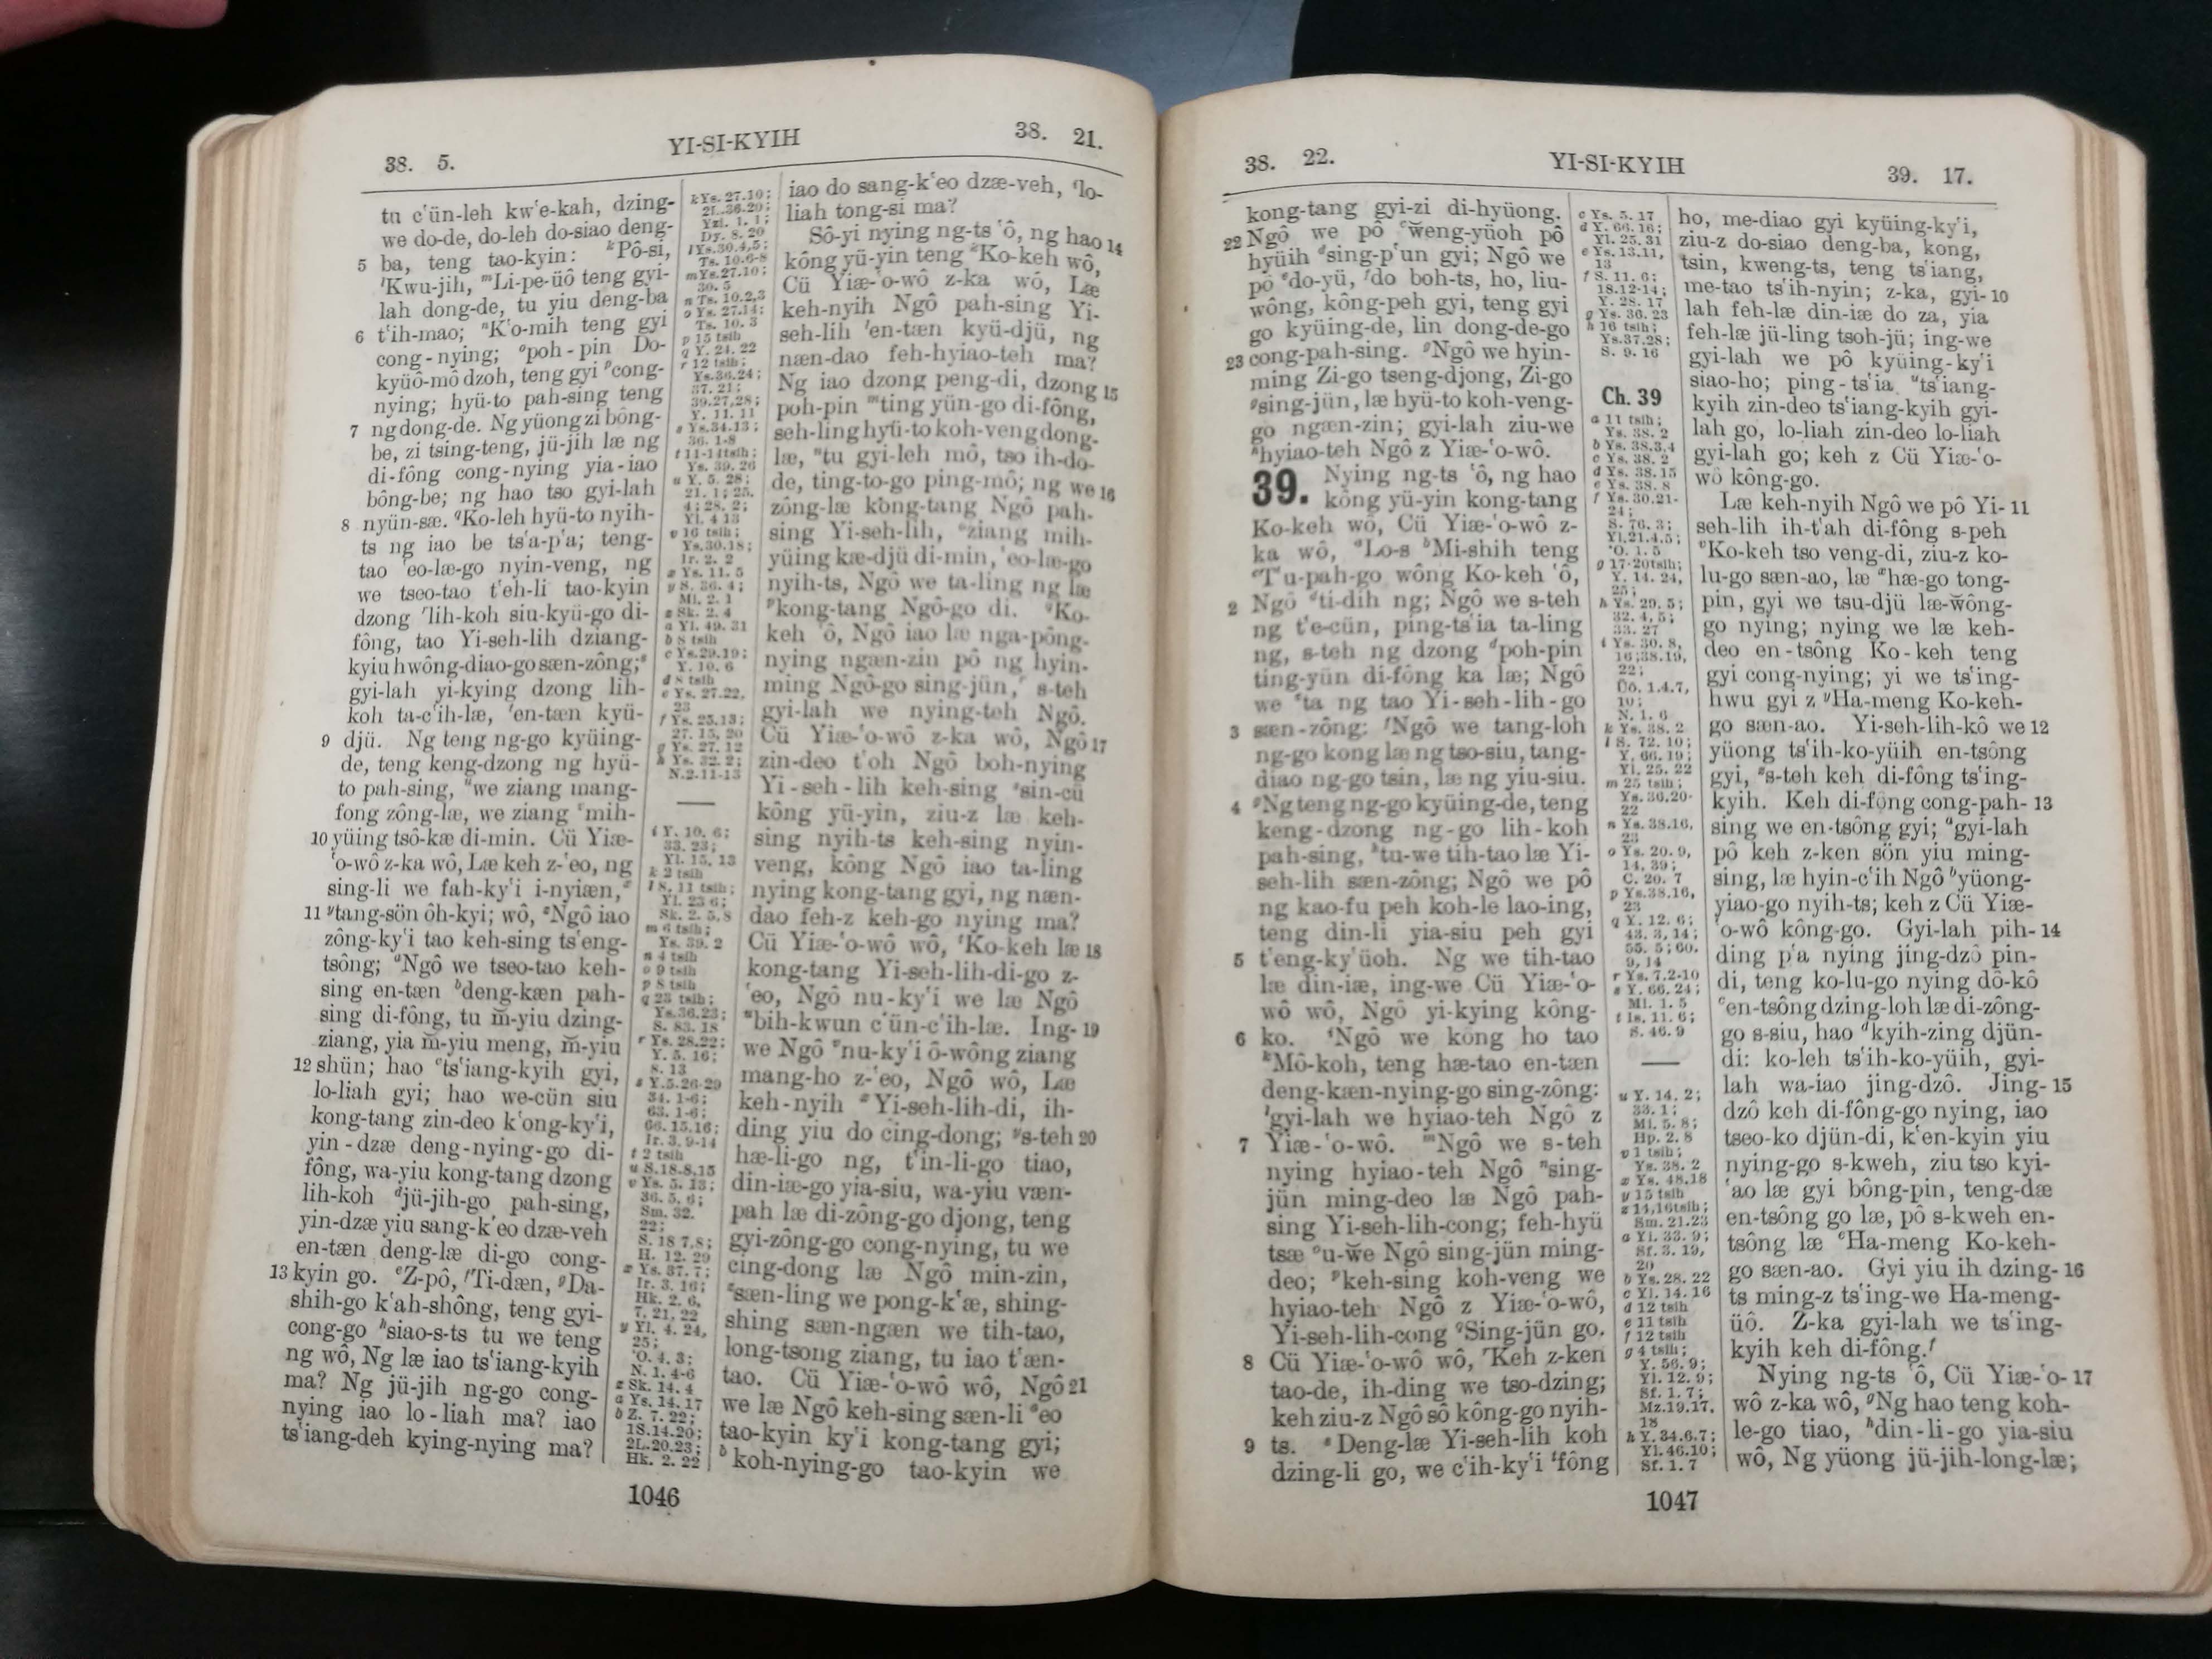 38. 5.
YI-SI-KYIH
38. 21.
tu c'ün-leh kw'e-kah, dzing-
we do-de, do-leh do-siao deng-
5 ba, teng tao-kyin: kPô-si,
lKwu-jih, mLi-pe-üô teng gyi-
lah dong-de, tu yiu deng-ba
6 t'ih-mao; nK'o-mih teng gyi
cong-nying; opoh-pin Do-
kyüô-mô dzoh, teng gyi pcong-
nying; hyü-to pah-sing teng
7 ng dong-de. Ng yüong zi bông-
be, zi tsing-teng, jü-jih læ ng
di-fông cong-nying yia-iao
bông-be; ng hao tso gyi-lah
8 nyün-sæ. qKo-leh hyü-to nyih-
ts ng iao be ts'a-p'a; teng-
tao 'eo-læ-go nyin-veng, ng
we tseo-tao t'eh-li tao-kyin
dzong rlih-koh siu-kyü-go di-
fông, tao Yi-seh-lih dziang-
kyiu hwông-diao-go sæn-zông;s
gyi-lah yi-kying dzong lih-
koh ta-c'ih-læ, ten-tæn kyü-
9 djü. Ng teng ng-go kyüing-
de, teng keng-dzong ng hyü-
to pah-sing, uwe ziang mang-
fong zông-læ, we ziang vmih-
10 yüing tsô-kæ di-min. Cü Yiæ-
'o-wô z-ka wô, Læ keh z-'eo, ng
sing-li we fah-ky'i i-nyiæn,x
11 ytang-sön ôh-kyi; wô, zNgô iao
zông-ky'i tao keh-sing ts'eng-
tsông; aNgô we tseo-tao keh-
sing en-tæn bdeng-kæn pah-
sing di-fông, tu m̆-yiu dzing-
ziang, yia m̆-yiu meng, m̆-yiu
12 shün; hao cts'iang-kyih gyi,
lo-liah gyi; hao we-cün siu
kong-tang zin-deo k'ong-ky'i,
yin-dzæ deng-nying-go di-
fông, wa-yiu kong-tang dzong
lih-koh djü-jih-go pah-sing,
yin-dzæ yiu sang-k'eo dzæ-veh
en-tæn deng-læ di-go cong-
13 kyin go. eZ-pô, fTi-dæn, gDa-
shih-go k'ah-shông, teng gyi-
cong-go hsiao-s-ts tu we teng
ng wô, Ng læ iao ts'iang-kyih
ma? Ng jü-jih ng-go cong-
nying iao lo-liah ma? iao
ts'iang-deh kying-nying ma?
k Ys. 27.10;
Yzl. 1. 1;
Dy. 8. 20
l Ys. 30.4,5;
Ts. 10.6-8
m Ys. 27.10;
30. 5
n Ts. 10.2,3
o Ys. 27.14;
Ts. 10. 3
p 15 tsih
q Y. 24. 22
r 12 tsih;
Ys. 36.24;
37. 21;
39.27,28;
Y. 11. 11
s Ys. 34.13;
36. 1-8
t 11-14 tsih;
Ys. 39. 26
u Y. 5. 28;
21. 1; 25.
4; 28. 2;
Yl. 4 13
v 16 tsih;
Ys. 30.18;
Ir. 2. 2
x Ys. 11. 5
y S. 36. 4;
Mi. 2. 1
z Sk. 2. 4
a Yl. 49. 31
b 8 tsih
c Ys. 29.19;
Y. 10. 6
d 8 tsih
e Ys. 27.22,
23
f Ys. 25.13;
27. 15, 20
g Ys. 27. 12
h Ys. 32. 2;
N. 2. 11-13
i Y. 10. 6;
33. 23;
Yl. 15. 13
k 2 tsih
l 8, 11 tsih;
Yl. 23 6;
Sk. 2. 5,8
m 6 tsih;
Ys. 39. 2
n 4 tsih
o 9 tsih
p 8 tsih
q 23 tsih;
Ys. 36.23;
S. 83. 18
r Ys. 28.22;
Y. 5. 16;
8. 13
s Y. 5. 26-29
34. 1-6;
63. 1-6;
66. 15,16;
Ir. 3. 9-14
t 2 tsih
u S. 18.8,15
v Ys. 5. 13;
36. 5, 6;
Sm. 32.
22;
S. 18 7,8;
H. 12. 29
x Ys. 37. 7;
Ir. 3. 16;
Hk. 2. 6,
7, 21, 22
y Yl. 4. 24,
25;
'O. 4. 3;
N. 1. 4-6
z Sk. 14. 4
a Ys. 14. 17
b Z. 7. 22;
1S. 14.20;
2L. 20.23;
Hk. 2. 22
iao do sang-k'eo dzæ-veh, ilo-
liah tong-si ma?
Sô-yi nying ng-ts 'ô, ng hao 14
kông yü-yin teng kKo-keh wô,
Cü Yiæ-'o-wô z-ka wô, Læ
keh-nyih Ngô pah-sing Yi-
seh-lih len-tæn kyü-djü, ng
næn-dao feh-hyiao-teh ma?
Ng iao dzong peng-di, dzong 15
poh-pin mting yün-go di-fông,
seh-ling hyü-to koh-veng dong-
læ, ntu gyi-leh mô, tso ih-do-
de, ting-to-go ping-mô; ng we 16
zông-læ kông-tang Ngô pah-
sing Yi-seh-lih, oziang mih-
yüing kæ-djü di-min, 'eo-læ-go
nyih-ts, Ngô we ta-ling ng læ
pkong-tang Ngô-go di. qKo-
keh 'ô, Ngô iao læ nga-pông-
nying ngæn-zin pô ng hyin-
ming Ngô-go sing-jün,r s-teh
gyi-lah we nying-teh Ngô.
Cü Yiæ-'o-wô z-ka wô, Ngô 17
zin-deo t'oh Ngô boh-nying
Yi-seh-lih keh-sing ssin-cü
kông yü-yin, ziu-z læ keh-
sing nyih-ts keh-sing nyin-
veng, kông Ngô iao ta-ling
nying kong-tang gyi, ng næn-
dao feh-z keh-go nying ma?
Cü Yiæ-'o-wô wô, tKo-keh læ 18
kong-tang Yi-seh-lih-di-go z-
'eo, Ngô nu-ky'i we læ Ngô
ubih-kwun c'ün-c'ih-læ. Ing- 19
we Ngô vnu-ky'i ô-wông ziang
mang-ho z-'eo, Ngô wô, Læ
keh-nyih xYi-seh-lih-di, ih-
ding yiu do cing-dong; ys-teh 20
hæ-li-go ng, t'in-li-go tiao,
din-iæ-go yia-siu, wa-yiu væn-
pah læ di-zông-go djong, teng
gyi-zông-go cong-nying, tu we
cing-dong læ Ngô min-zin,
zsæn-ling we pong-k'æ, shing-
shing sæn-ngæn we tih-tao,
long-tsong ziang, tu iao t'æn-
tao. Cü Yiæ-'o-wô wô, Ngô 21
we læ Ngô keh-sing sæn-li aeo
tao-kyin ky'i kong-tang gyi;
bkoh-nying-go tao-kyin we
1046
38. 22.
YI-SI-KYIH
39. 17.
kong-tang gyi-zi di-hyüong.
22 Ngô we pô cw̆eng-yüoh pô
hyüih dsing-p'un gyi; Ngô we
pô edo-yü, fdo boh-ts, ho, liu-
wông, kông-peh gyi, teng gyi
go kyüing-de, lin dong-de-go
23 cong-pah-sing. gNgô we hyin-
ming Zi-go tseng-djong, Zi-go
gsing-jün, læ hyü-to koh-veng-
go ngæn-zin; gyi-lah ziu-we
hhyiao-teh Ngô z Yiæ-'o-wô.
39. Nying ng-ts 'ô, ng hao
kông yü-yin kong-tang
Ko-keh wô, Cü Yiæ-'o-wô z-
ka wô, aLo-s bMi-shih teng
cT'u-pah-go wông Ko-keh 'ô,
2 Ngô dti-dih ng; Ngô we s-teh
ng t'e-cün, ping-ts'ia ta-ling
ng, s-teh ng dzong dpoh-pin
ting-yün di-fông ka læ; Ngô
we eta ng tao Yi-seh-lih-go
3 sæn-zông: fNgô we tang-loh
ng-go kong læ ng tso-siu, tang-
diao ng-go tsin, læ ng yiu-siu.
4 gNg teng ng-go kyüing-de, teng
keng-dzong ng-go lih-koh
pah-sing, htu-we tih-tao læ Yi-
seh-lih sæn-zông; Ngô we pô
ng kao-fu peh koh-le lao-ing,
teng din-li yia-siu peh gyi
5 t'eng-ky'üoh. Ng we tih-tao
læ din-iæ, ing-we Cü Yiæ-'o-
wô wô, Ngô yi-kying kông-
6 ko. iNgô we kông ho tao
kMô-koh, teng hæ-tao en-tæn
deng-kæn-nying-go sing-zông:
lgyi-lah we hyiao-teh Ngô z
7 Yiæ-'o-wô. mNgô we s-teh
nying hyiao-teh Ngô nsing-
jün ming-deo læ Ngô pah-
sing Yi-seh-lih-cong; feh-hyü
tsæ ou-w̆e Ngô sing-jün ming-
deo; pkeh-sing koh-veng we
hyiao-teh Ngô z Yiæ-'o-wô,
Yi-seh-lih-cong qSing-jün go.
8 Cü Yiæ-'o-wô wô, rKeh z-ken
tao-de, ih-ding we tso-dzing;
keh ziu-z Ngô sô kông-go nyih-
9 ts. sDeng-læ Yi-seh-lih koh
dzing-li go, we c'ih-ky'i tfông
c Ys. 5. 17
d Y. 66. 16;
Yl. 25. 31
e Ys. 13.11,
13
f S. 11. 6;
18. 12-14;
Y. 28. 17
g Ys. 36. 23
h 16 tsih;
Ys. 37.28;
S. 9. 16
Ch. 39
a 11 tsih;
Ys. 38. 2
b Ys. 38.3,4
c Ys. 38. 2
d Ys. 38. 15
e Ys. 38. 8
f Ys. 30.21-
24;
S. 76. 3;
Yl. 21.4,5;
'O. 1. 5
g 17-20 tsih;
Y. 14. 24,
25;
h Ys. 29. 5;
32. 4, 5;
33. 27
i Ys. 30. 8,
16; 38. 19,
22;
Ôo. 1.4,7,
10;
N. 1. 6
k Ys. 38. 2
l S. 72. 10;
Y. 66. 19;
Yl. 25. 22
m 25 tsih;
Ys. 36.20-
22
n Ys. 38.16,
23
o Ys. 20. 9,
14, 39;
C. 20. 7
p Ys. 38.16,
23
q Y. 12. 6;
43. 3, 14;
55. 5; 60.
9, 14
r Ys. 7. 2-10
s Y. 66. 24;
Ml. 1. 5
t Is. 11. 6;
S. 46. 9
u Y. 14. 2;
33. 1;
Mi. 5. 8;
Hp. 2. 8
v 1 tsih;
Ys. 38. 2
x Ys. 48.18
y 15 tsih
z 14,16 tsih;
Sm. 21.23
a Yl. 33. 9;
Sf. 3. 19,
20
b Ys. 28. 22
c Yl. 14. 16
d 12 tsih
e 11 tsih
f 12 tsih
g 4 tsih;
Y. 56. 9;
Yl. 12. 9;
Sf. 1. 7;
Mz. 19.17,
18
h Y. 34.6,7;
Yl. 46.10;
Sf. 1. 7
ho, me-diao gyi kyüing-ky'i,
ziu-z do-siao deng-ba, kong,
tsin, kweng-ts, teng ts'iang,
me-tao ts'ih-nyin; z-ka, gyi- 10
lah feh-læ din-iæ do za, yia
feh-læ jü-ling tsoh-jü; ing-we
gyi-lah we pô kyüing-ky'i
siao-ho; ping-ts'ia uts'iang-
kyih zin-deo ts'iang-kyih gyi-
lah go, lo-liah zin-deo lo-liah
gyi-lah go; keh z Cü Yiæ-'o-
wô kông-go.
Læ keh-nyih Ngô we pô Yi- 11
seh-lih ih-t'ah di-fông s-peh
vKo-keh tso veng-di, ziu-z ko-
lu-go sæn-ao, læ xhæ-go tong-
pin, gyi we tsu-djü læ-w̆ông-
go nying; nying we læ keh-
deo en-tsông Ko-keh teng
gyi cong-nying; yi we ts'ing-
hwu gyi z yHa-meng Ko-keh-
go sæn-ao. Yi-seh-lih-kô we 12
yüong ts'ih-ko-yüih en-tsông
gyi, zs-teh keh di-fông ts'ing-
kyih. Keh di-fong cong-pah- 13
sing we en-tsông gyi; agyi-lah
pô keh z-ken sön yiu ming-
sing, læ hyin-c'ih Ngô byüong-
yiao-go nyih-ts; keh z Cü Yiæ-
'o-wô kông-go. Gyi-lah pih- 14
ding p'a nying jing-dzô pin-
di, teng ko-lu-go nying dô-kô
cen-tsông dzing-loh læ di-zông-
go s-siu, hao dkyih-zing djün-
di: ko-leh ts'ih-ko-yüih, gyi-
lah wa-iao jing-dzô. Jing- 15
dzô keh di-fông-go nying, iao
tseo-ko djün-di, k'en-kyin yiu
nying-go s-kweh, ziu tso kyi-
'ao læ gyi bông-pin, teng-dæ
en-tsông go læ, pô s-kweh en-
tsông læ eHa-meng Ko-keh-
go sæn-ao. Gyi yiu ih dzing- 16
ts ming-z ts'ing-we Ha-meng-
üô. Z-ka gyi-lah we ts'ing-
kyih keh di-fông.f
Nying ng-ts 'ô, Cü Yiæ-'o- 17
wô z-ka wô, gNg hao teng koh-
le-go tiao, hdin-li-go yia-siu
wô, Ng yüong jü-jih-long-læ;
1047